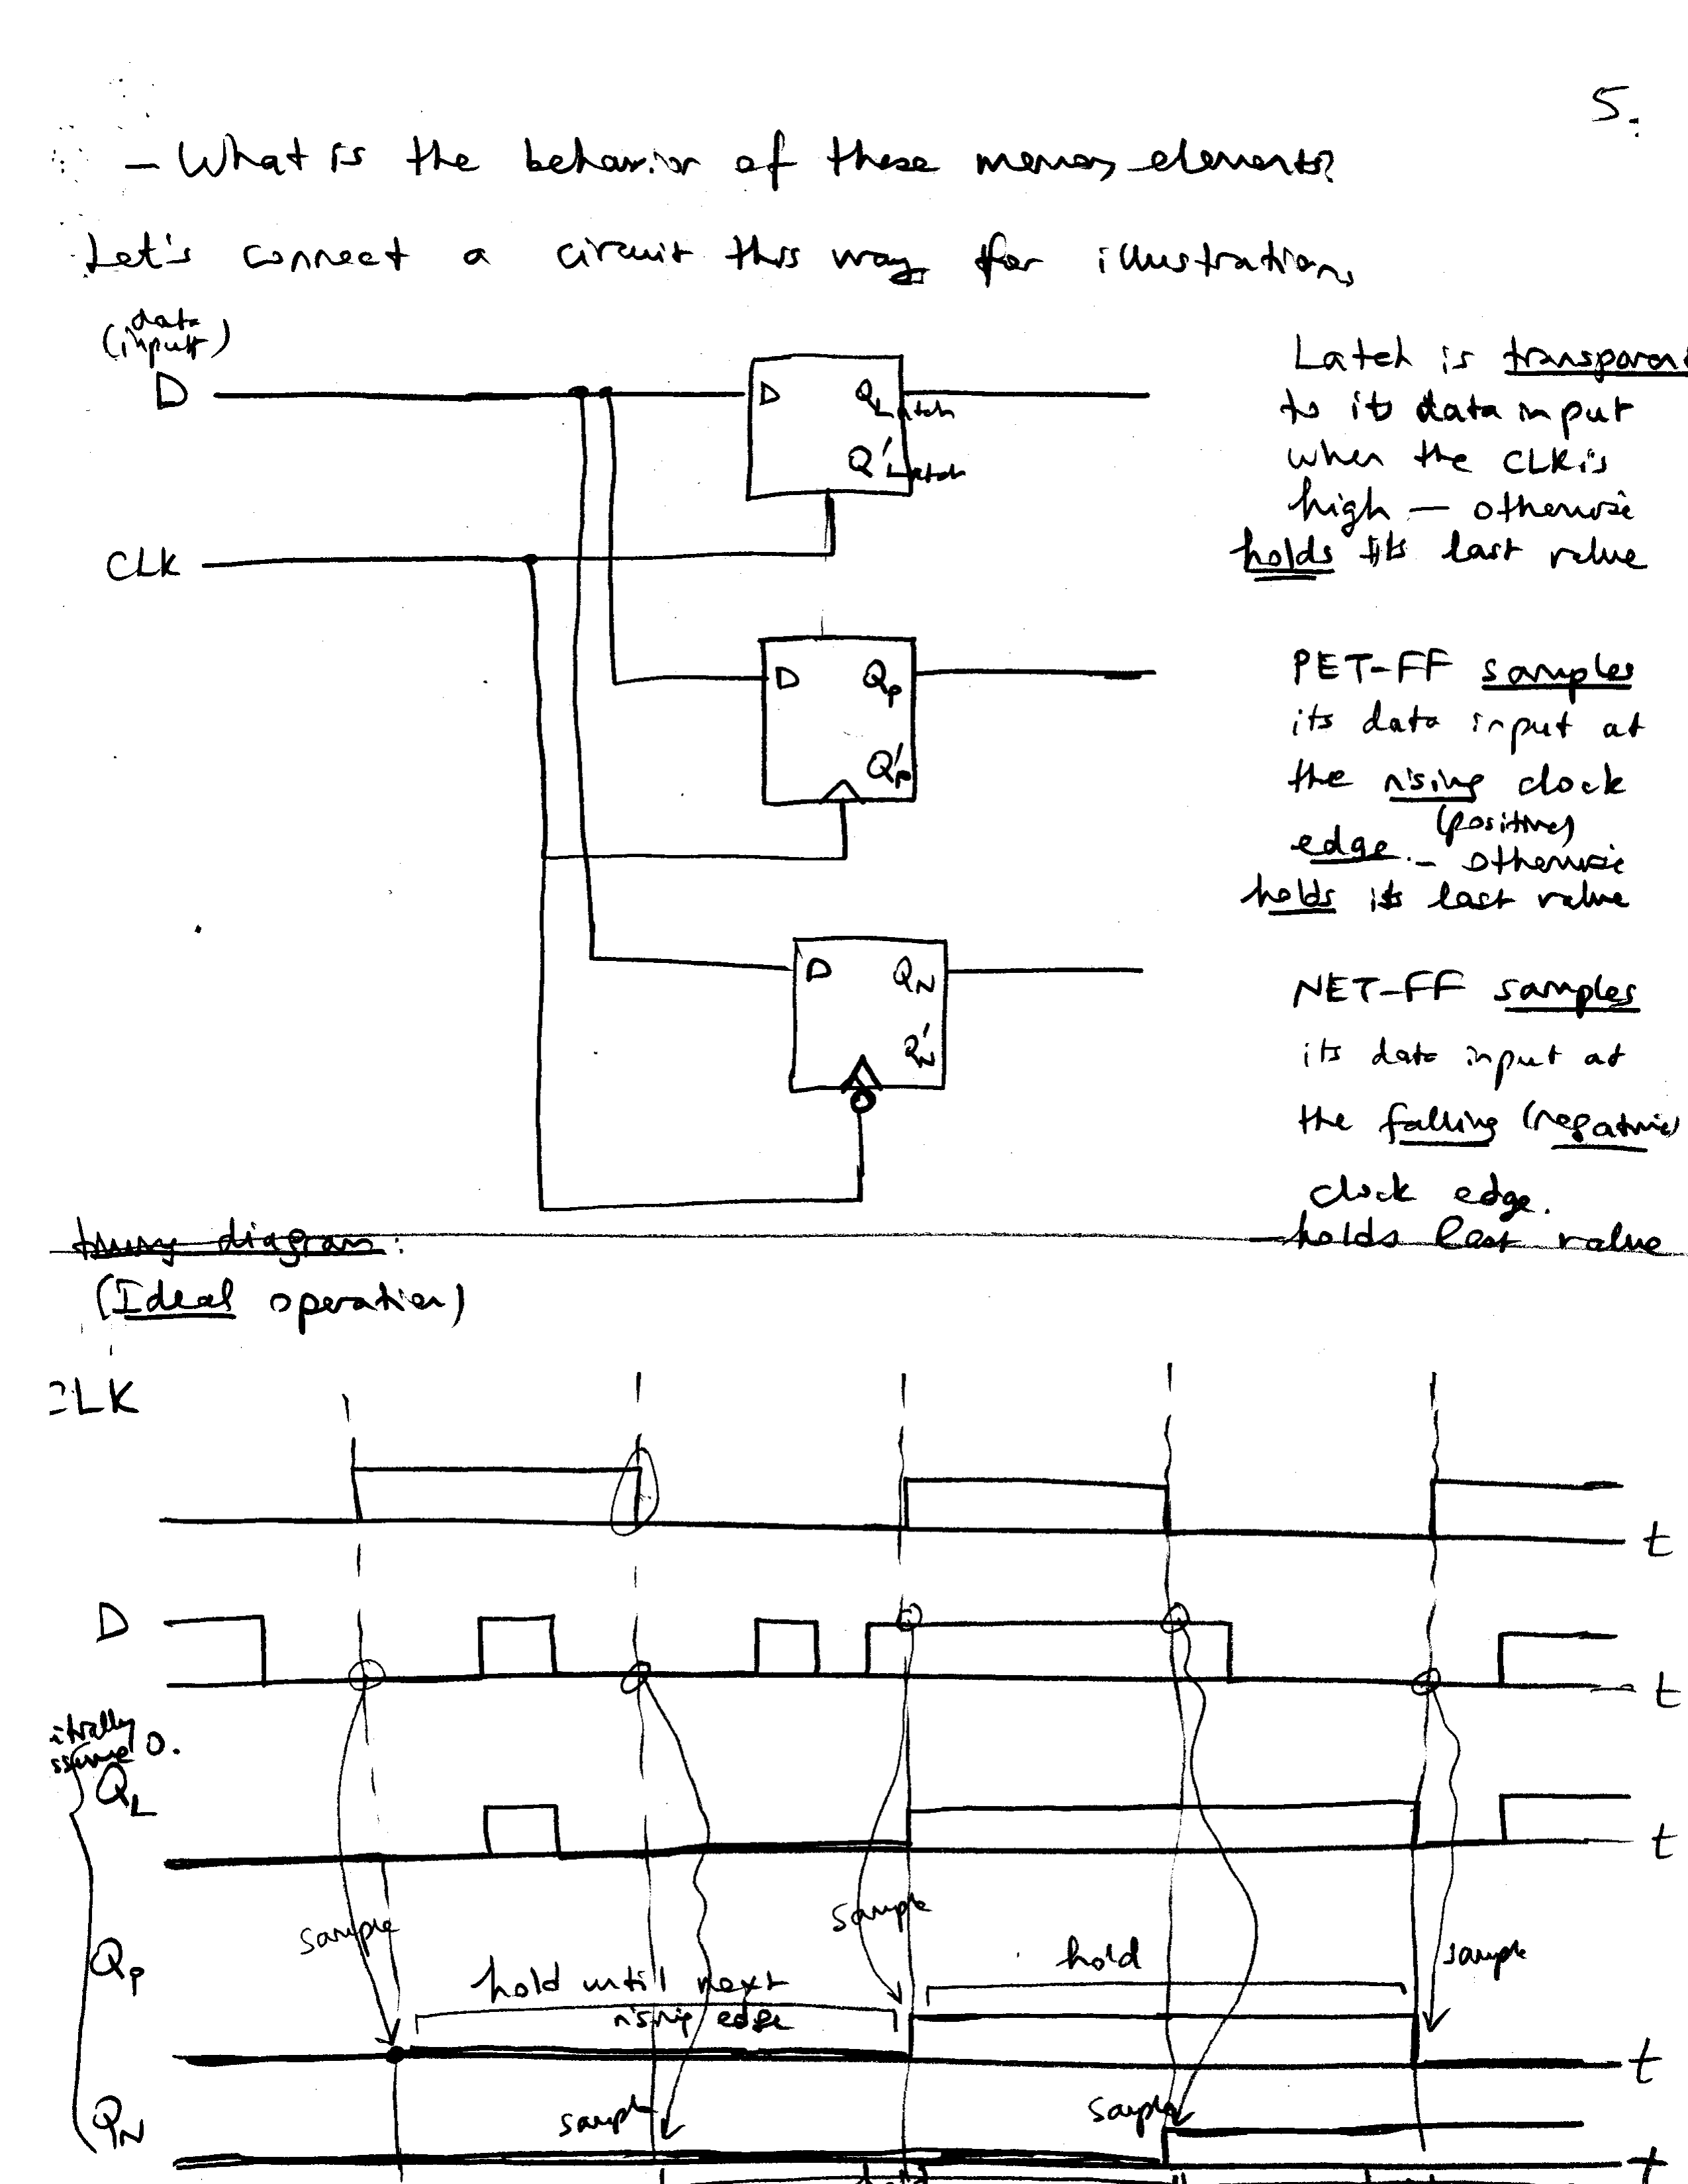 5.
- What is the behavior of these memory elements?
Let's connect a circuit this way for illustration,
(data
input)
D
D
QLatch
Q'Latch
CLK
Latch is transparent
to its data input
when the CLK is
high — otherwise
holds its last value
D
Qp
Q'p
PET-FF samples
its data input at
the rising clock
(positive)
edge. - otherwise
holds its last value
D
QN
Q'N
NET-FF samples
its data input at
the falling (negative)
clock edge.
- holds last value
timing diagram:
(Ideal operation)
CLK
t
D
t
itially
ssume 0.
QL
t
sample
sample
Qp
hold until next
rising edge
hold
sample
t
QN
sample
sample
t